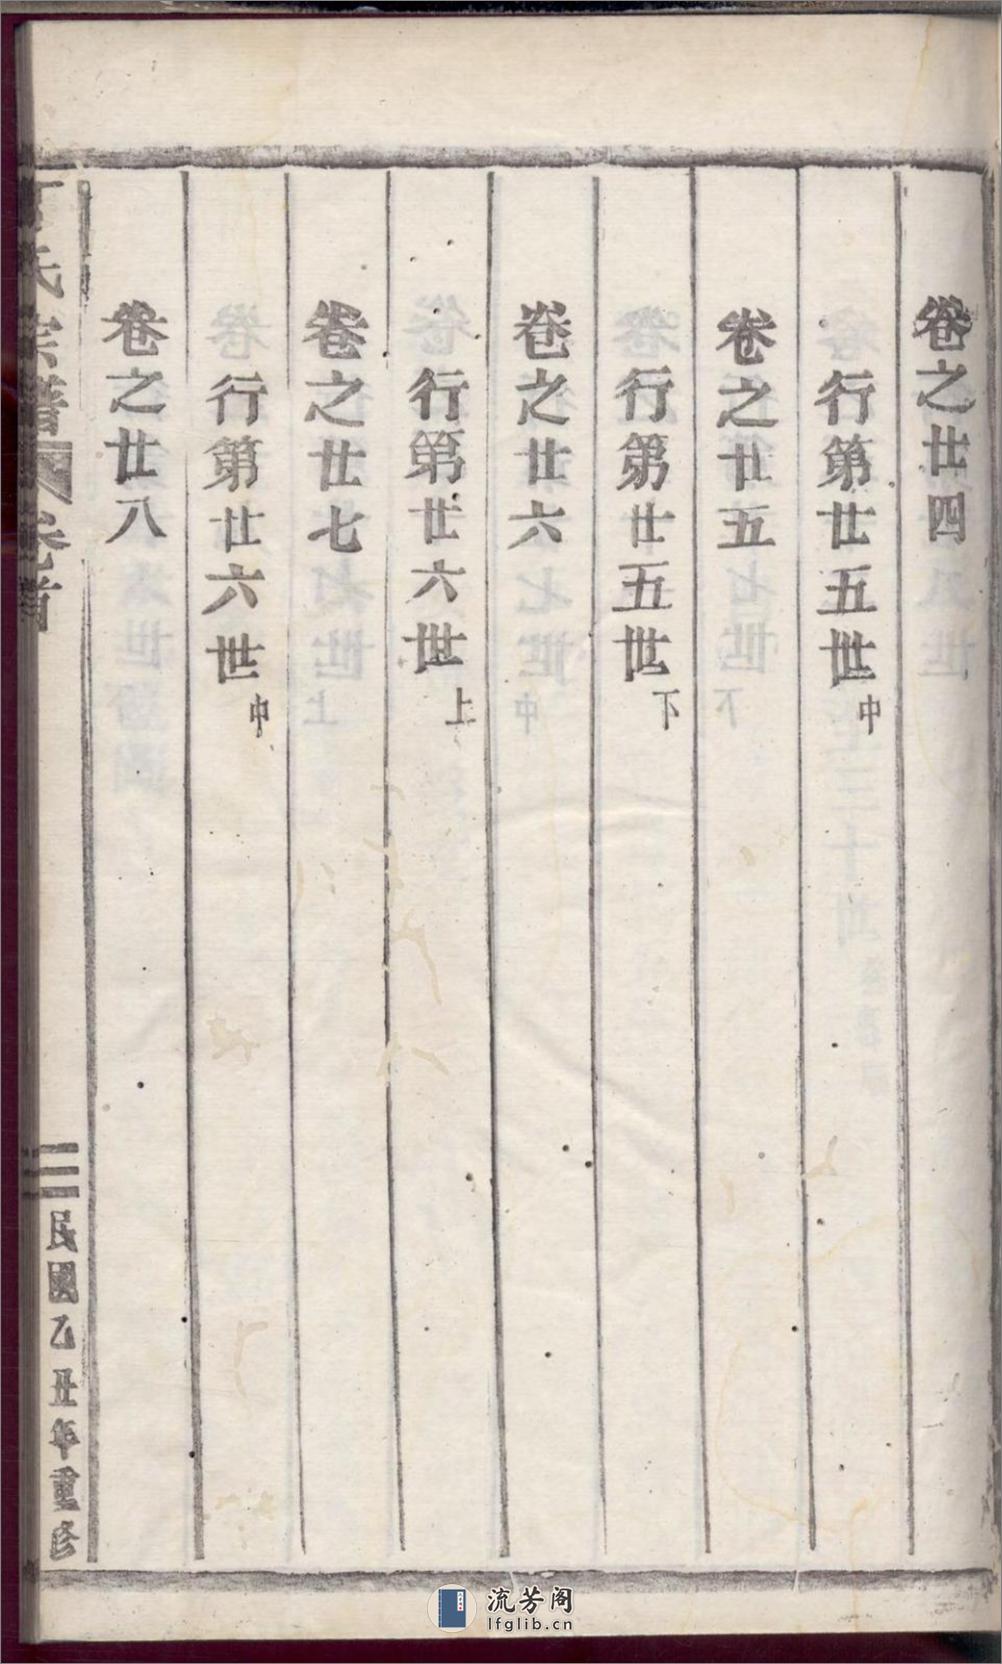 卷之廿四
行第廿五世中
卷之廿五
行第廿五世下
卷之廿六
行第廿六世上
卷之廿七
行第廿六世中
卷之廿八
氏宗譜
卷首
民國乙丑年重修
流芳阁
lfglib.cn